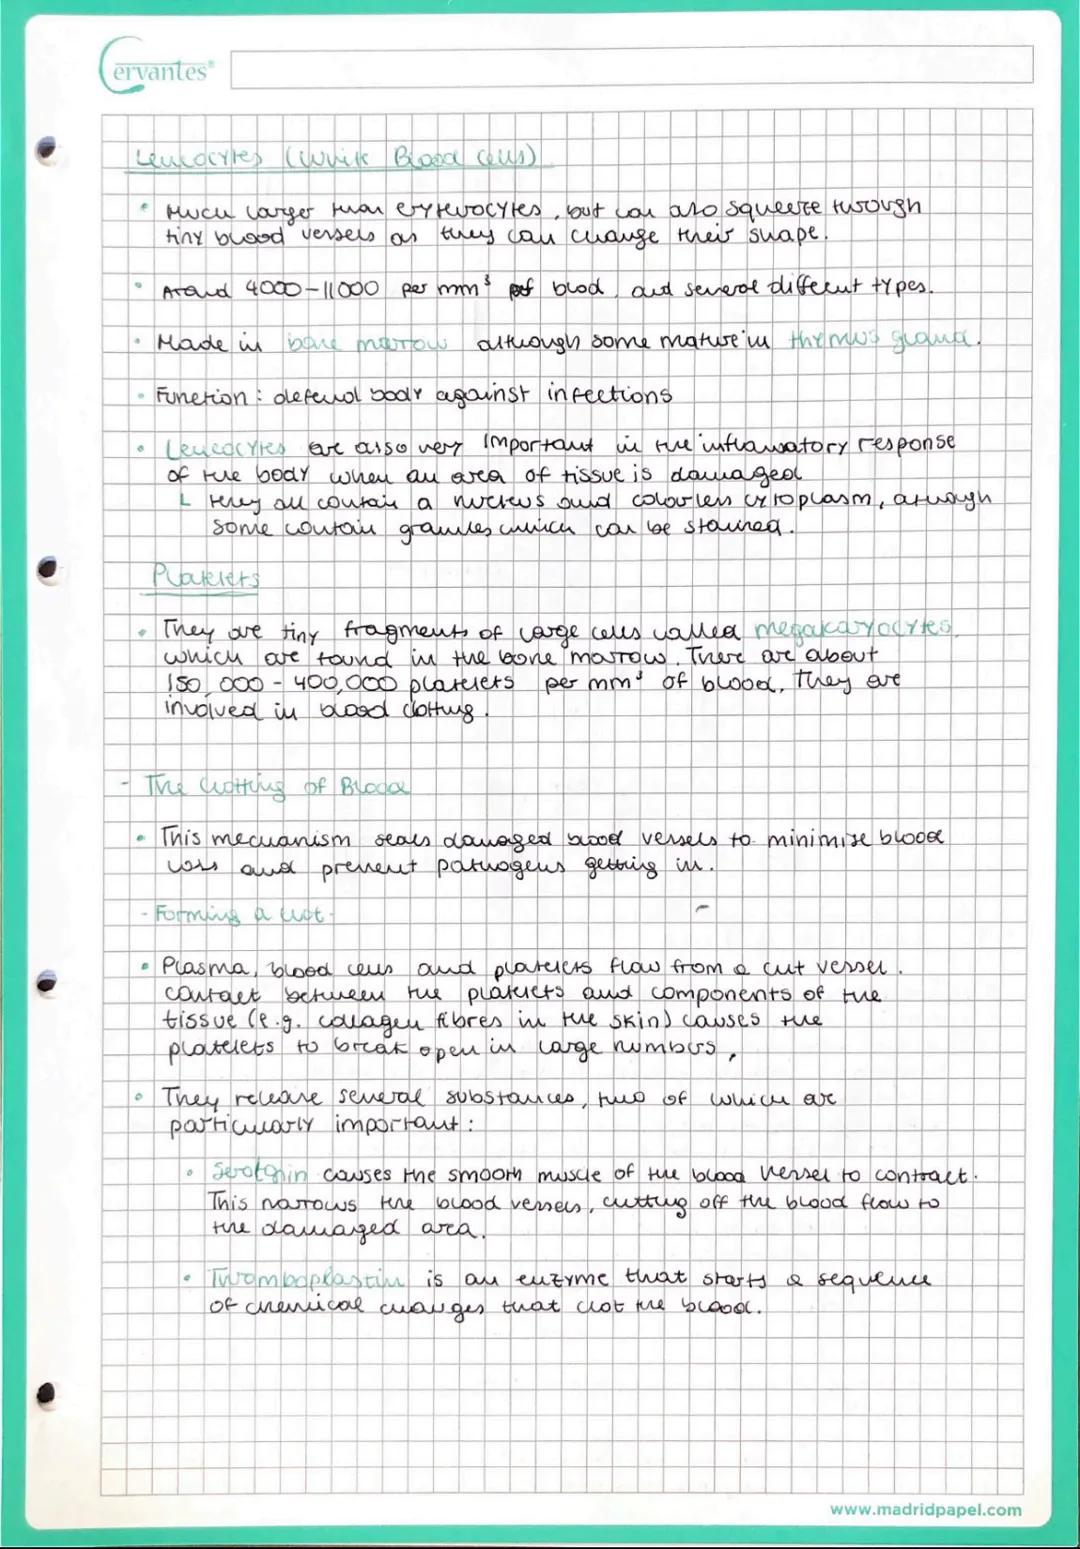 Cervantes®
Leucocytes (White Blood cells)
• Much larger than erythrocytes, but can also squeeze through
tiny blood vessels as they can change their shape.
• Around 4000-11000 per mm³ of blood, and several different types.
• Made in bone marrow although some mature in thymus gland.
• Function: defend body against infections
• Leucocytes are also very important in the inflamatory response
of the body when an area of tissue is damaged
L they all contain a nucleus and colourless cytoplasm, although
some contain granules which can be stained.
Platelets
• They are tiny fragments of large cells called megakaryocytes,
which are found in the bone marrow. There are about
150,000 - 400,000 platelets per mm³ of blood. They are
involved in blood clotting.
- The Clotting of Blood
• This mechanism seals damaged blood vessels to minimize blood
loss and prevent pathogens getting in.
- Forming a clot -
• Plasma, blood cells and platelets flow from a cut vessel.
Contact between the platelets and components of the
tissue (e.g. collagen fibres in the skin) causes the
platelets to break open in large numbers.
• They release several substances, two of which are
particularly important:
• Serotonin causes the smooth muscle of the blood vessel to contract.
This narrows the blood vessels, cutting off the blood flow to
the damaged area.
• Thromboplastin is an enzyme that starts a sequence
of chemical changes that clot the blood.
www.madridpapel.com